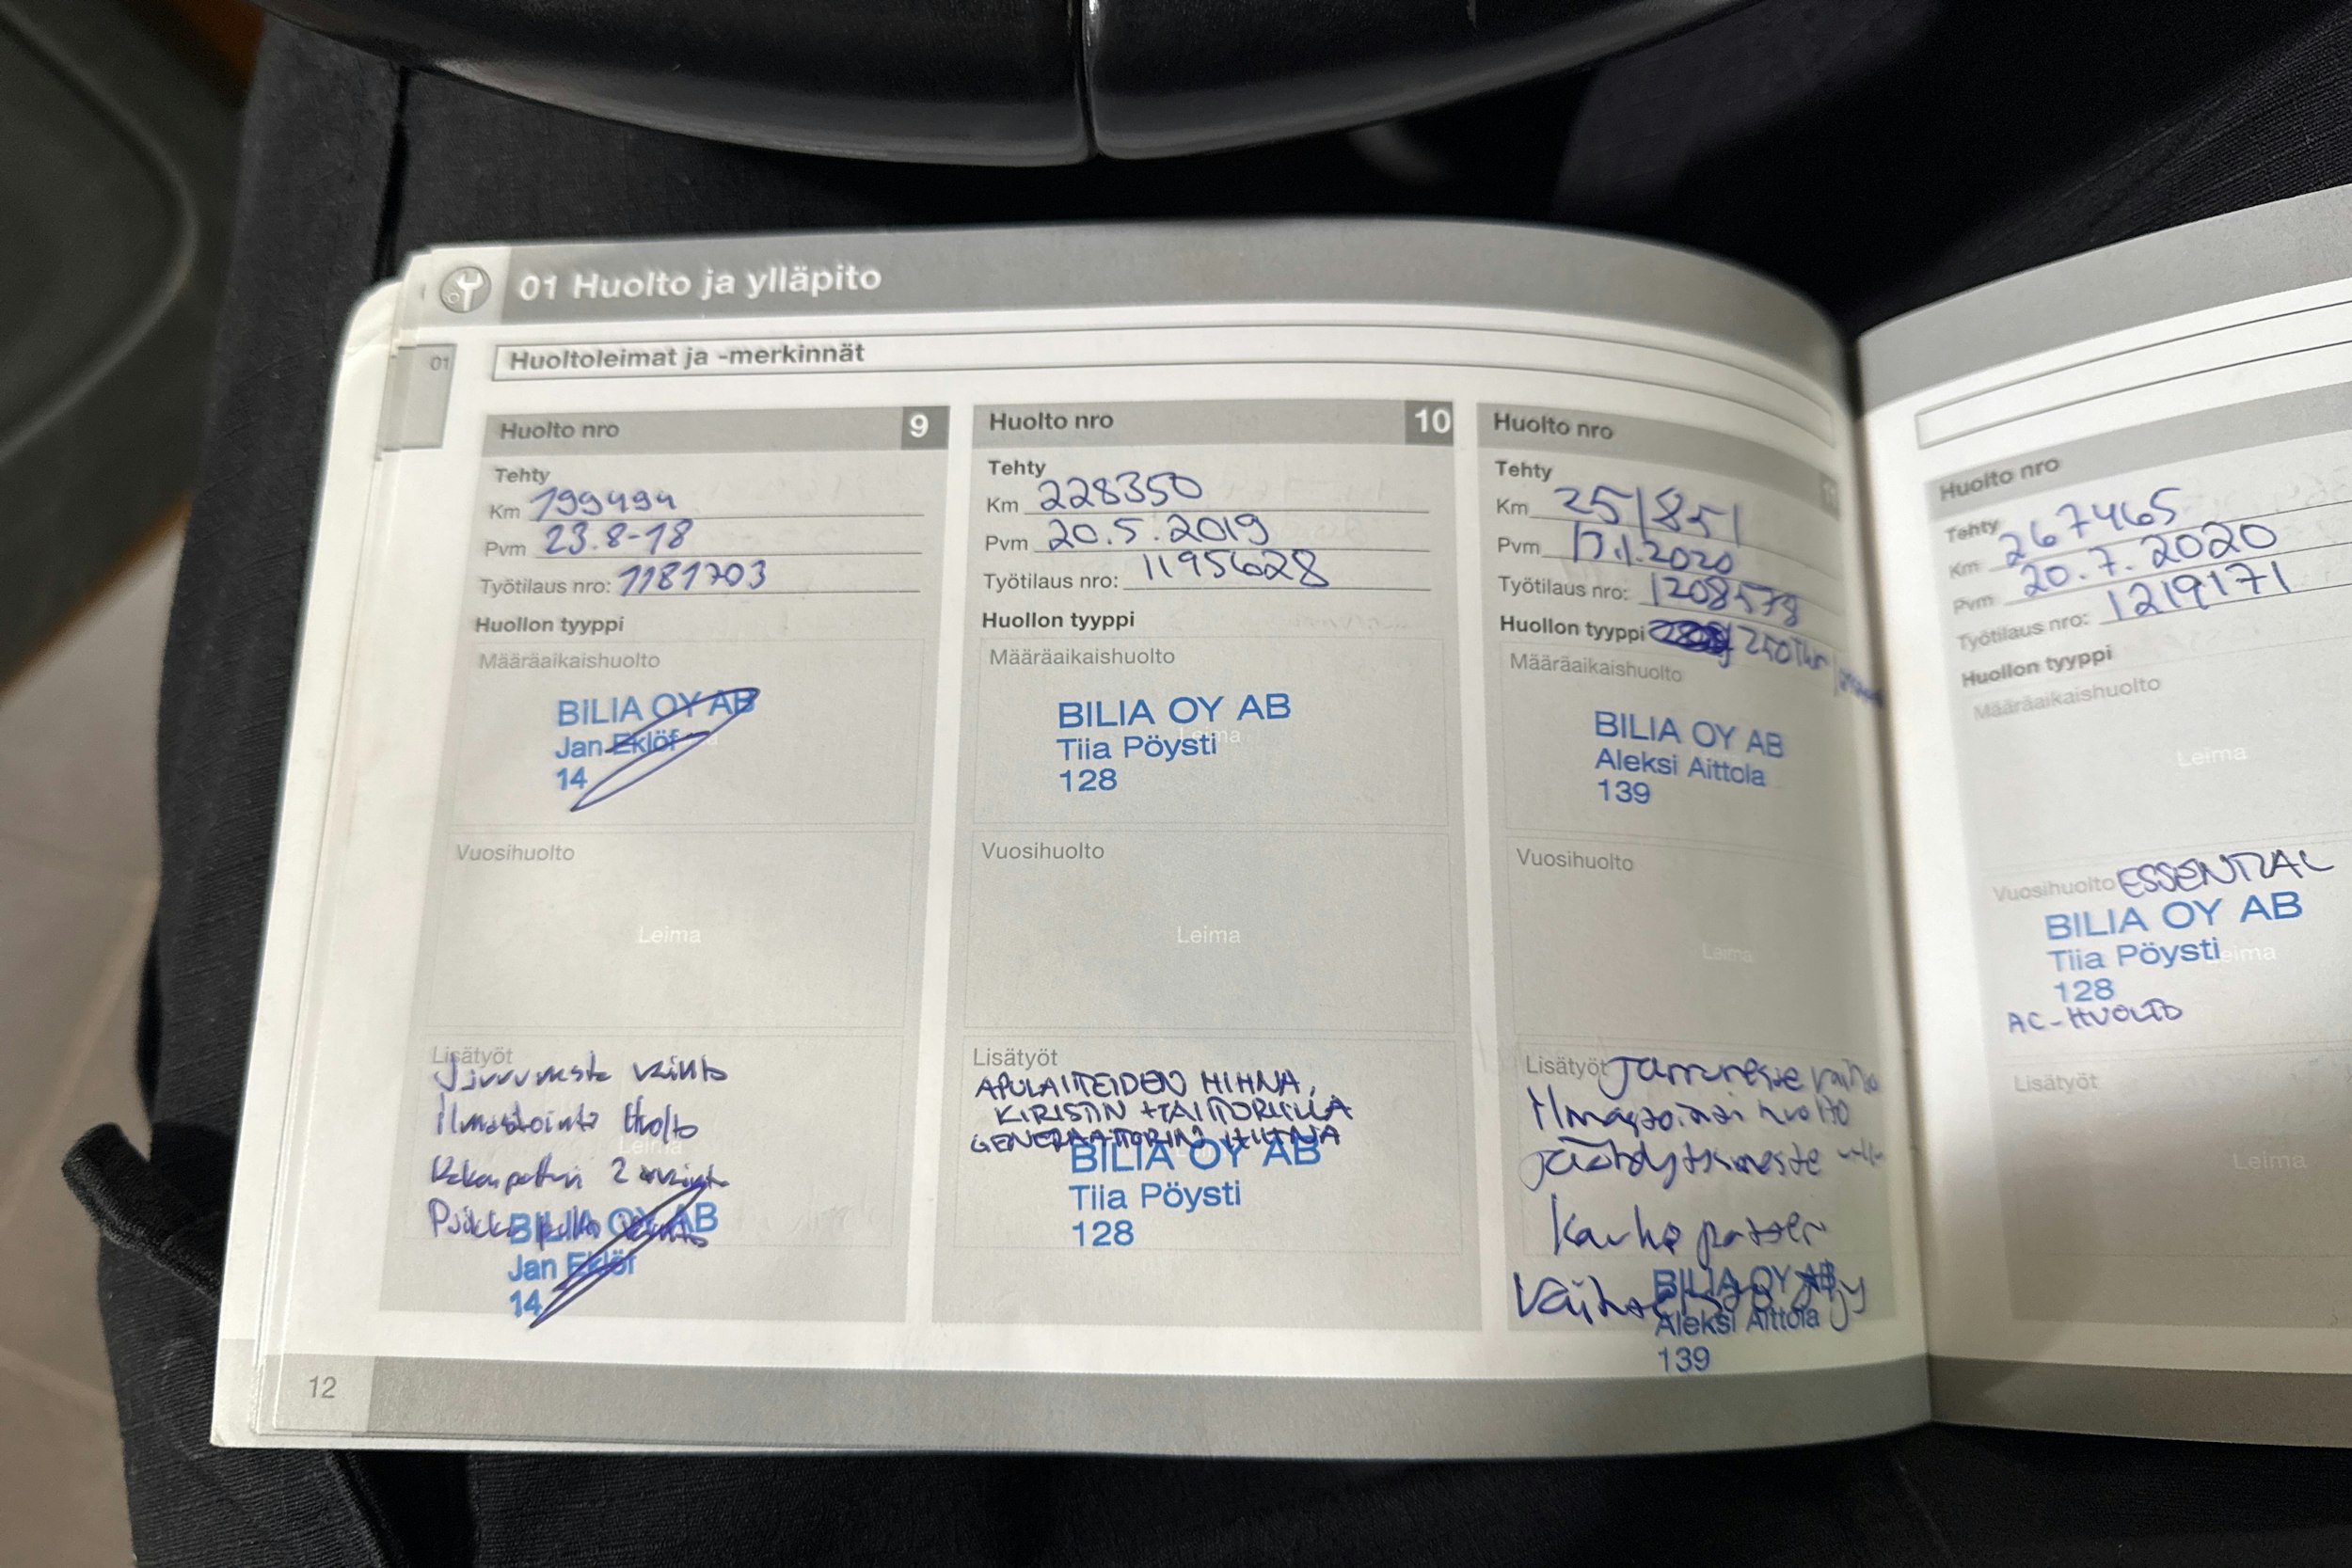 01 Huolto ja ylläpito
01
Huoltoleimat ja -merkinnät
Huolto nro 9
Tehty
Km 199494
Pvm 23.8-18
Työtilaus nro: 1181703
Huollon tyyppi
Määräaikaishuolto
BILIA OY AB
Jan Eklöf
14
Vuosihuolto
Leima
Lisätyöt
Jarruneste vaihto
Ilmastointi Huolto
2
BILIA OY AB
Jan Eklöf
14
12
Huolto nro 10
Tehty
Km 228350
Pvm 20.5.2019
Työtilaus nro: 1195628
Huollon tyyppi
Määräaikaishuolto
BILIA OY AB
Tiia Pöysti
128
Vuosihuolto
Leima
Lisätyöt
APULAITTEIDEN HIHNA,
KIRISTIN + TAITTORULLA
GENERAATTORIN HIHNA
BILIA OY AB
Tiia Pöysti
128
Huolto nro 11
Tehty
Km 251851
Pvm 17.1.2020
Työtilaus nro: 1208579
Huollon tyyppi
Määräaikaishuolto
BILIA OY AB
Aleksi Aittola
139
Vuosihuolto
Leima
Lisätyöt Jarruneste vaihto
Ilmastoinni huolto
jäähdytysneste
BILIA OY AB
Aleksi Aittola
139
Huolto nro
Tehty
Km 267465
Pvm 20.7.2020
Työtilaus nro: 1219171
Huollon tyyppi
Määräaikaishuolto
Leima
Vuosihuolto ESSENTIAL
BILIA OY AB
Tiia Pöysti
128
AC-HUOLTO
Lisätyöt
Leima